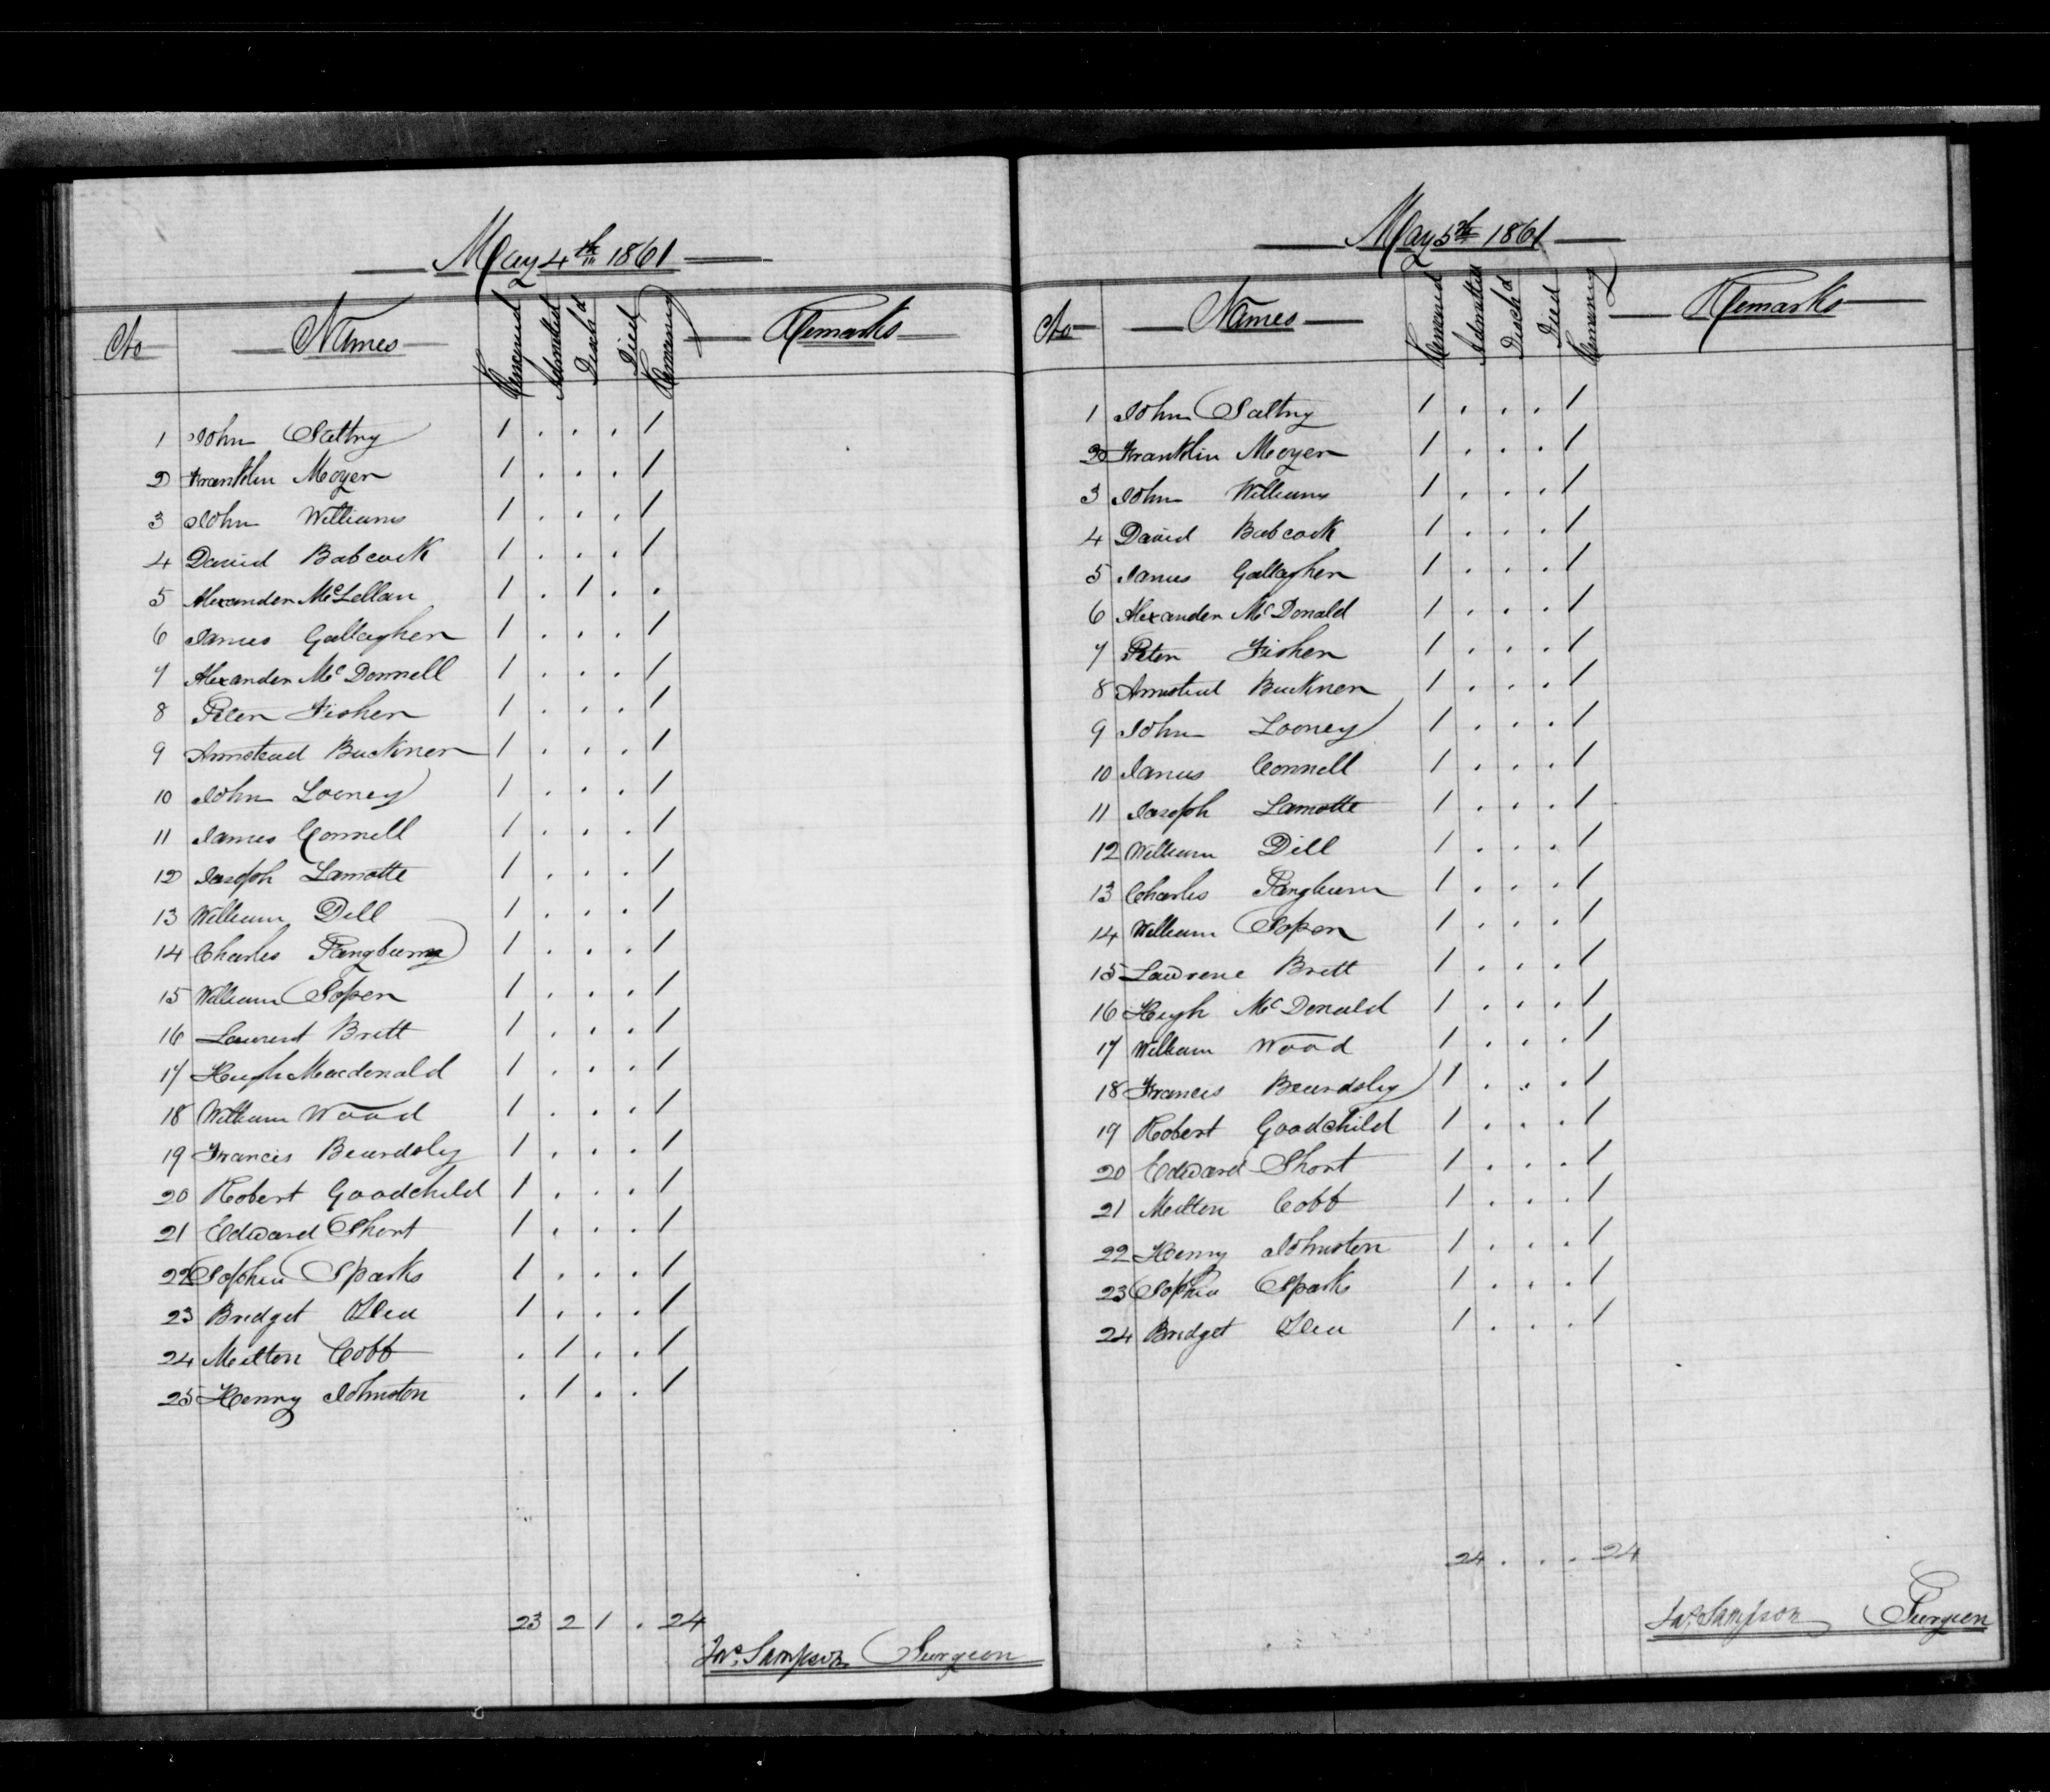 May 4th 1861
No Names Remained Admitted Disch'd Died Remaining Remarks
1 John Saltry 1 . . . 1
2 Franklin Moyer 1 . . . 1
3 John Williams 1 . . . 1
4 David Babcock 1 . . . 1
5 Alexander McLellan 1 . 1 . .
6 James Gallagher 1 . . . 1
7 Alexander McDonnell 1 . . . 1
8 Peter Fisher 1 . . . 1
9 Armstead Buckner 1 . . . 1
10 John Looney 1 . . . 1
11 James Connell 1 . . . 1
12 Joseph Lamotte 1 . . . 1
13 William Dill 1 . . . 1
14 Charles Pangburn 1 . . . 1
15 William Soper 1 . . . 1
16 Brett 1 . . . 1
17 Hugh Macdonald 1 . . . 1
18 William Wood 1 . . . 1
19 Francis Beardsley 1 . . . 1
20 Robert Goodchild 1 . . . 1
21 Edward Short 1 . . . 1
22 Sophia Sparks 1 . . . 1
23 Bridget 1 . . . 1
24 Milton Cobb . 1 . . 1
25 Henry Johnston . 1 . . 1
23 2 1 . 24
Jas. Sampson Surgeon
May 5th 1861
No Names Remained Admitted Disch'd Died Remaining Remarks
1 John Saltry 1 . . . 1
2 Franklin Moyer 1 . . . 1
3 John Williams 1 . . . 1
4 David Babcock 1 . . . 1
5 James Gallagher 1 . . . 1
6 Alexander McDonald 1 . . . 1
7 Peter Fisher 1 . . . 1
8 Armstead Buckner 1 . . . 1
9 John Looney 1 . . . 1
10 James Connell 1 . . . 1
11 Joseph Lamotte 1 . . . 1
12 William Dill 1 . . . 1
13 Charles Pangburn 1 . . . 1
14 William Soper 1 . . . 1
15 Lawrence Brett 1 . . . 1
16 Hugh McDonald 1 . . . 1
17 William Wood 1 . . . 1
18 Francis Beardsley 1 . . . 1
19 Robert Goodchild 1 . . . 1
20 Edward Short 1 . . . 1
21 Milton Cobb 1 . . . 1
22 Henry Johnston 1 . . . 1
23 Sophia Sparks 1 . . . 1
24 Bridget 1 . . . 1
24 . . . 24
Jas. Sampson Surgeon